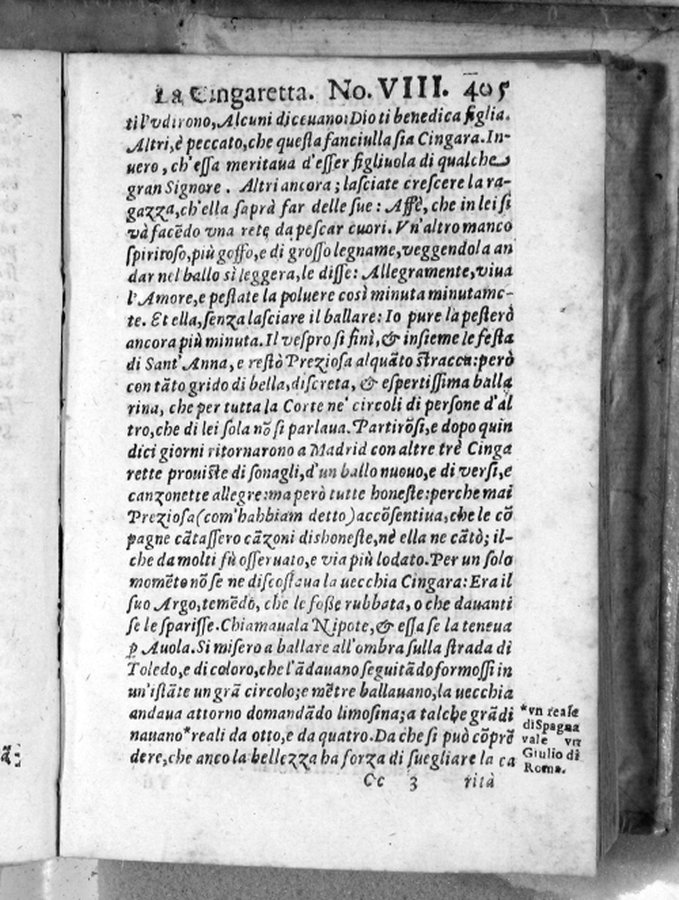 La Cingaretta. No. VIII. 405
til'vdirono, Alcuni diceuano: Dio ti benedica figlia.
Altri, è peccato, che questa fanciulla sia Cingara. In-
uero, ch'essa meritaua d'esser figliuola di qualche
gran Signore. Altri ancora; lasciate crescere la ra-
gazza, ch'ella saprà far delle sue: Affè, che in lei si
và facẽdo vna rete da pescar cuori. Vn'altro manco
spiritoso, più goffo, e di grosso legname, veggendola an
dar nel ballo sì leggera, le disse: Allegramente, viua
l'Amore, e pestate la poluere così minuta minutamẽ-
te. Et ella, senza lasciare il ballare: Io pure la pesterò
ancora più minuta. Il vespro si finì, & insieme le festa
di Sant'Anna, e restò Preziosa alquãto stracca: però
con tãto grido di bella, discreta, & espertissima balla
rina, che per tutta la Corte ne' circoli di persone d'al
tro, che di lei sola nõ si parlaua. Partirõsi, e dopo quin
dici giorni ritornarono a Madrid con altre trè Cinga
rette prouiste di sonagli, d'un ballo nuouo, e di versi, e
canzonette allegre: ma però tutte honeste: perche mai
Preziosa (com'habbiam detto) accõsentiua, che le cõ
pagne cãtassero cãzoni dishoneste, nè ella ne cãtò; il-
che da molti fù osseruato, e via più lodato. Per un solo
momẽto nõ se ne discostaua la uecchia Cingara: Era il
suo Argo, temẽdo, che le fosse rubbata, o che dauanti
se le sparisse. Chiamauala Nipote, & essa se la teneua
p̱ Auola. Si misero a ballare all'ombra sulla strada di
Toledo, e di coloro, che l'ãdauano seguitãdo formossi in
un'istãte un grã circolo; e mẽtre ballauano, la uecchia
andaua attorno domandãdo limosina; a talche grãdi
nauano*reali da otto, e da quatro. Da che si può cõprẽ
dere, che anco la bellezza ha forza di suegliare la ca
Cc 3 rità
*vn reale
di Spagna
vale vn
Giulio di
Roma.